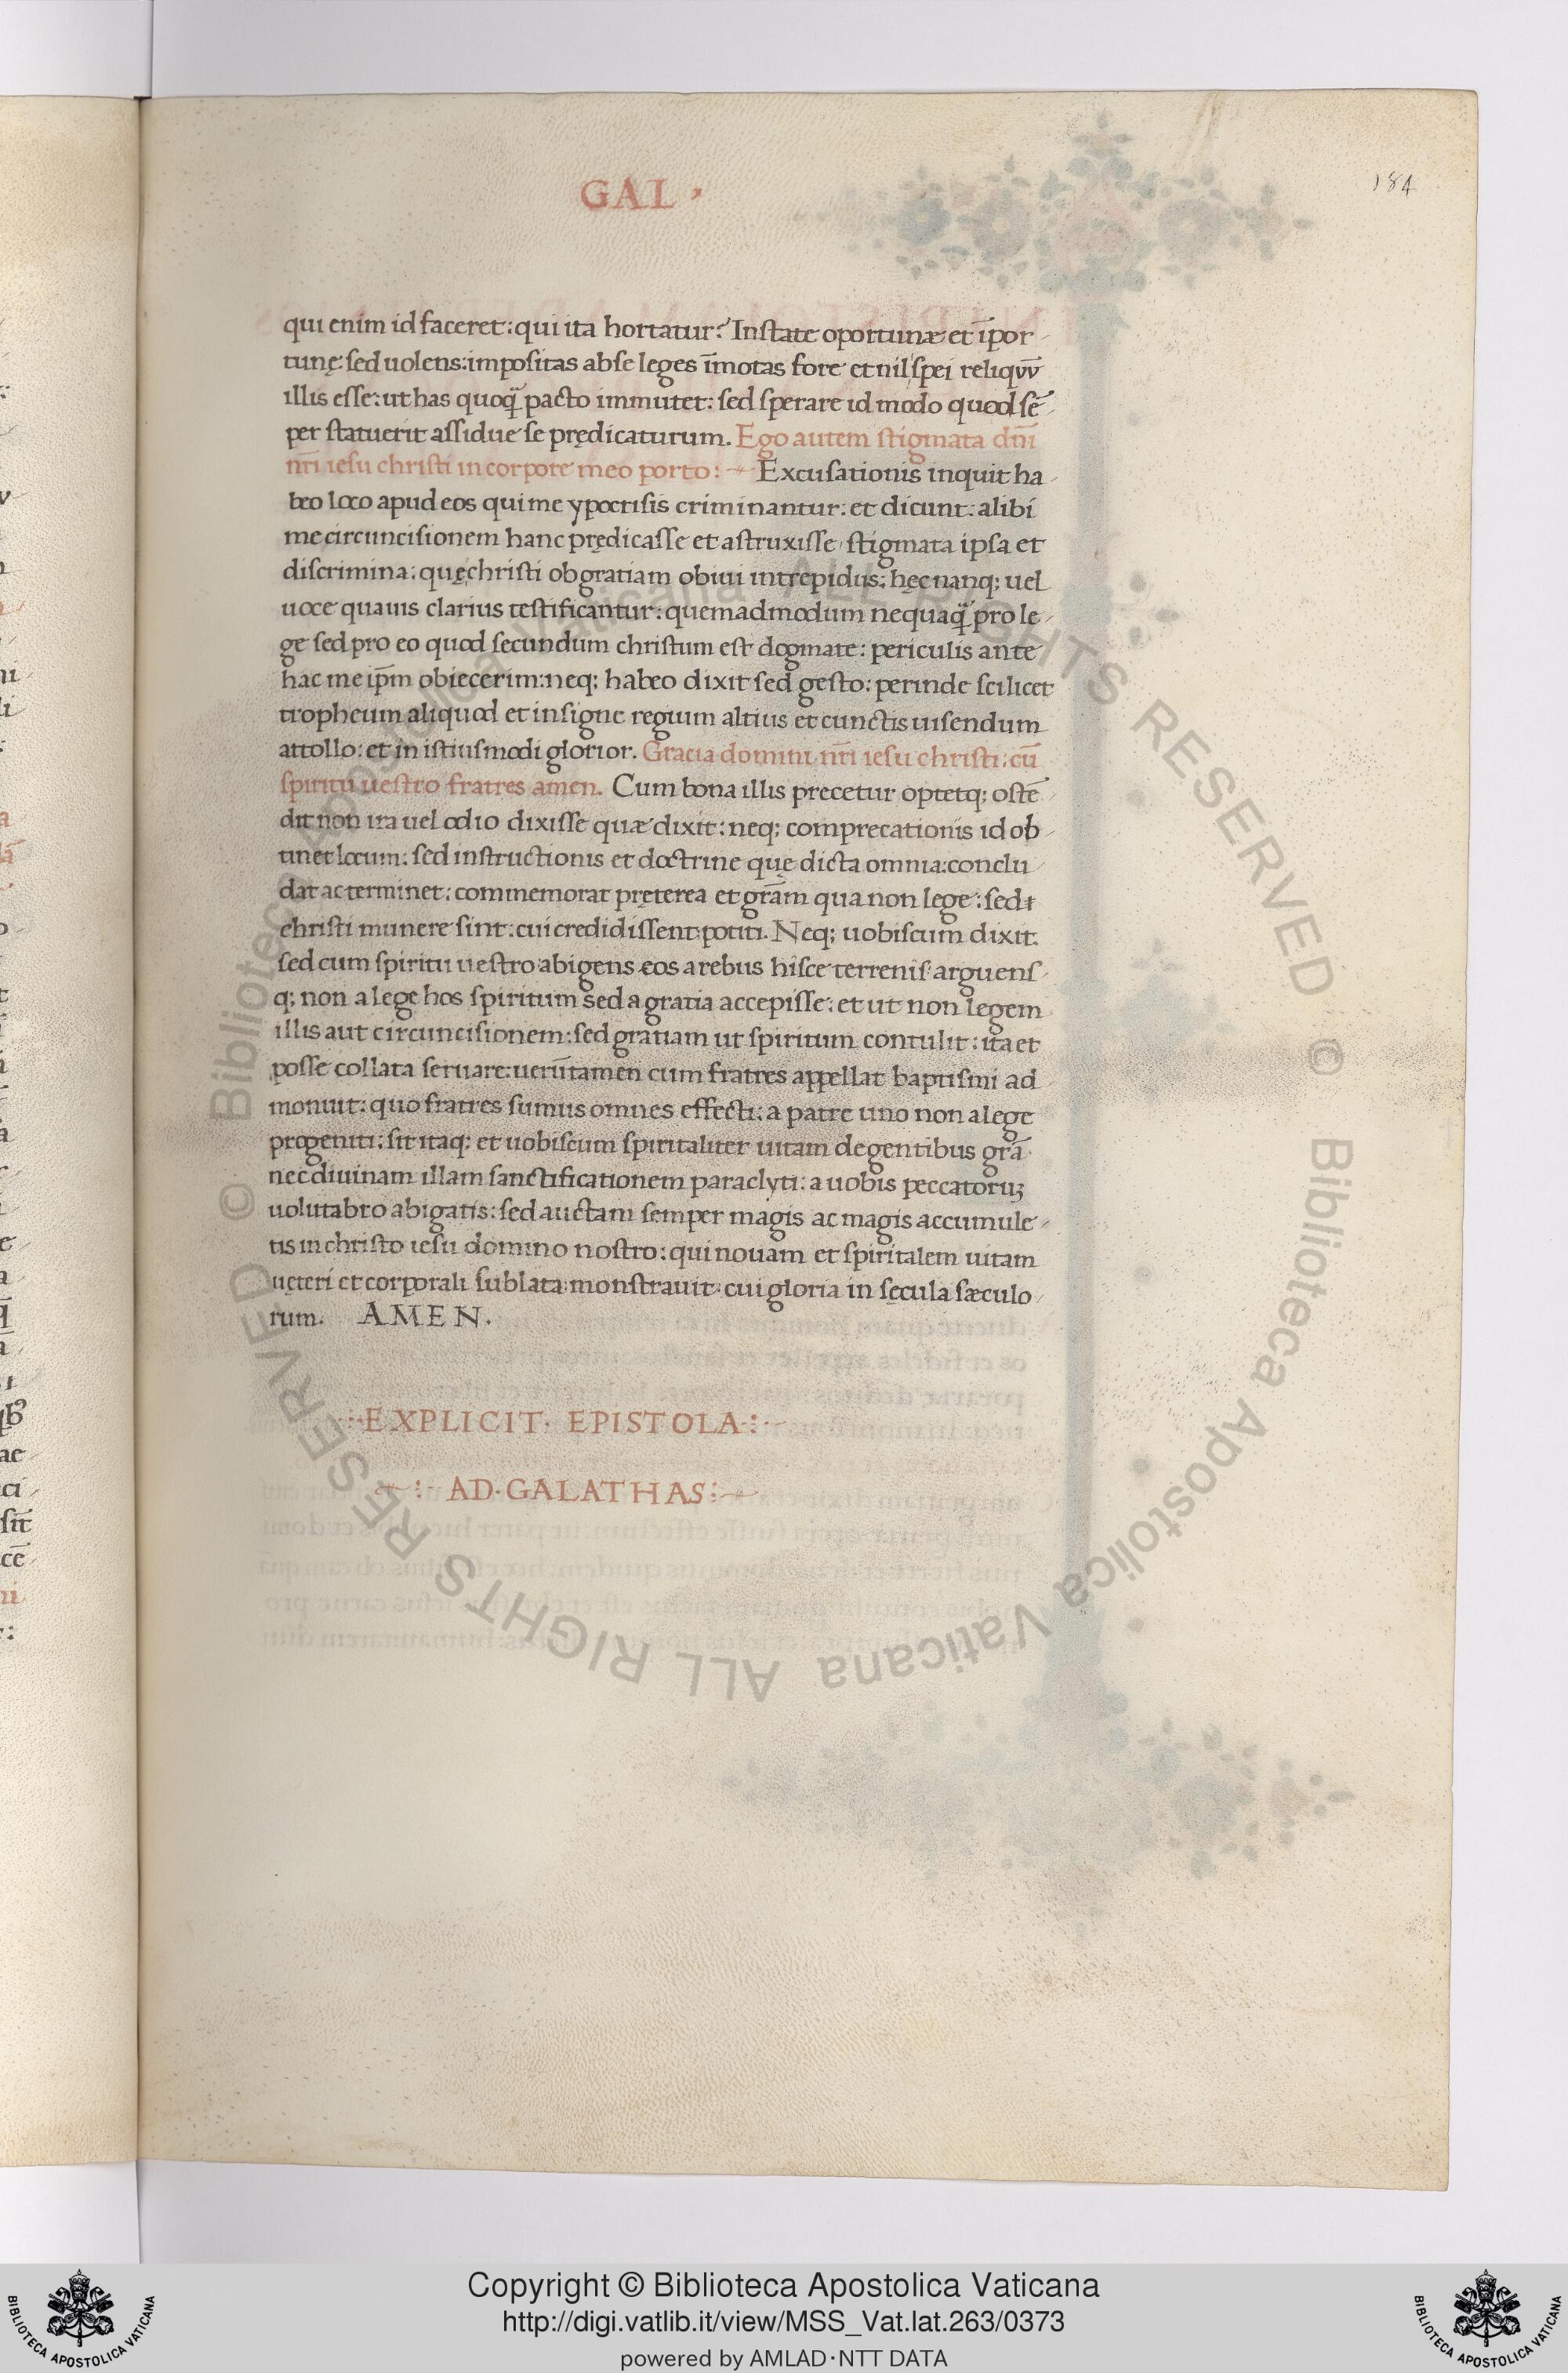 GAL
184
qui enim id faceret: qui ita hortatur? Instate oportunæ et īpor
tunę sed uolens: impositas abse leges īmotas fore et nil spei reliquū
illis esse: ut has quoq̃ pacto immutet: sed sperare id modo quod sē
per statuerit assidue se prędicaturum. Ego autem stigmata dn̄i
nr̄i iesu christi in corpore meo porto: Excusationis inquit ha
beo loco apud eos qui me ypocrisis criminantur: et dicunt: alibi
me circuncisionem hanc prędicasse et astruxisse stigmata ipsa et
discrimina: quę christi ob gratiam obiui intrepidus: hęc nanq; uel
uoce quauis clarius testificantur: quemadmodum nequaq̃ pro le
ge sed pro eo quod secundum christum est dogmate: periculis ante
hac me ip̄m obiecerim: neq; habeo dixit sed gesto: perinde scilicet
tropheum aliquod et insigne regium altius et cunctis uisendum
attollo: et in istiusmodi glorior. Gracia domini nr̄i iesu christi: cū
spiritu uestro fratres amen. Cum bona illis precetur optetq; ostē
dit non ira uel odio dixisse quæ dixit: neq; comprecationis id ob
tinet locum: sed instructionis et doctrine quę dicta omnia: conclu
dat ac terminet: commemorat pręterea et gr̄am qua non lege: sed
christi munere sint: cui credidissent potiti. Neq; uobiscum dixit
sed cum spiritu uestro abigens eos a rebus hisce terrenis arguens
q; non a lege hos spiritum sed a gratia accepisse: et ut non legem
illis aut circuncisionem: sed gratiam ut spiritum contulit: ita et
posse collata seruare: uerūtamen cum fratres appellat baptismi ad
monuit: quo fratres sumus omnes effecti: a patre uno non a lege
progeniti: sit itaq; et uobiscum spiritaliter uitam degentibus gr̄a
nec diuinam illam sanctificationem paraclyti: a uobis peccatoruꝫ
uolutabro abigatis: sed auctam semper magis ac magis accumule
tis in christo iesu domino nostro: qui nouam et spiritalem uitam
ueteri et corporali sublata monstrauit: cui gloria in sęcula sæculo
rum. AMEN.
EXPLICIT· EPISTOLA
AD·GALATHAS
© Biblioteca Apostolica Vaticana ALL RIGHTS RESERVED © Biblioteca Apostolica Vaticana ALL RIGHTS RESERVED
BIBLIOTECA APOSTOLICA VATICANA
Copyright © Biblioteca Apostolica Vaticana
http://digi.vatlib.it/view/MSS_Vat.lat.263/0373
powered by AMLAD·NTT DATA
BIBLIOTECA APOSTOLICA VATICANA